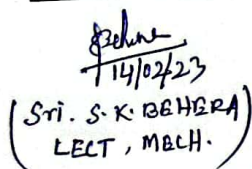 Behera
14/02/23
(Sri. S. K. BEHERA
LECT, MECH.)